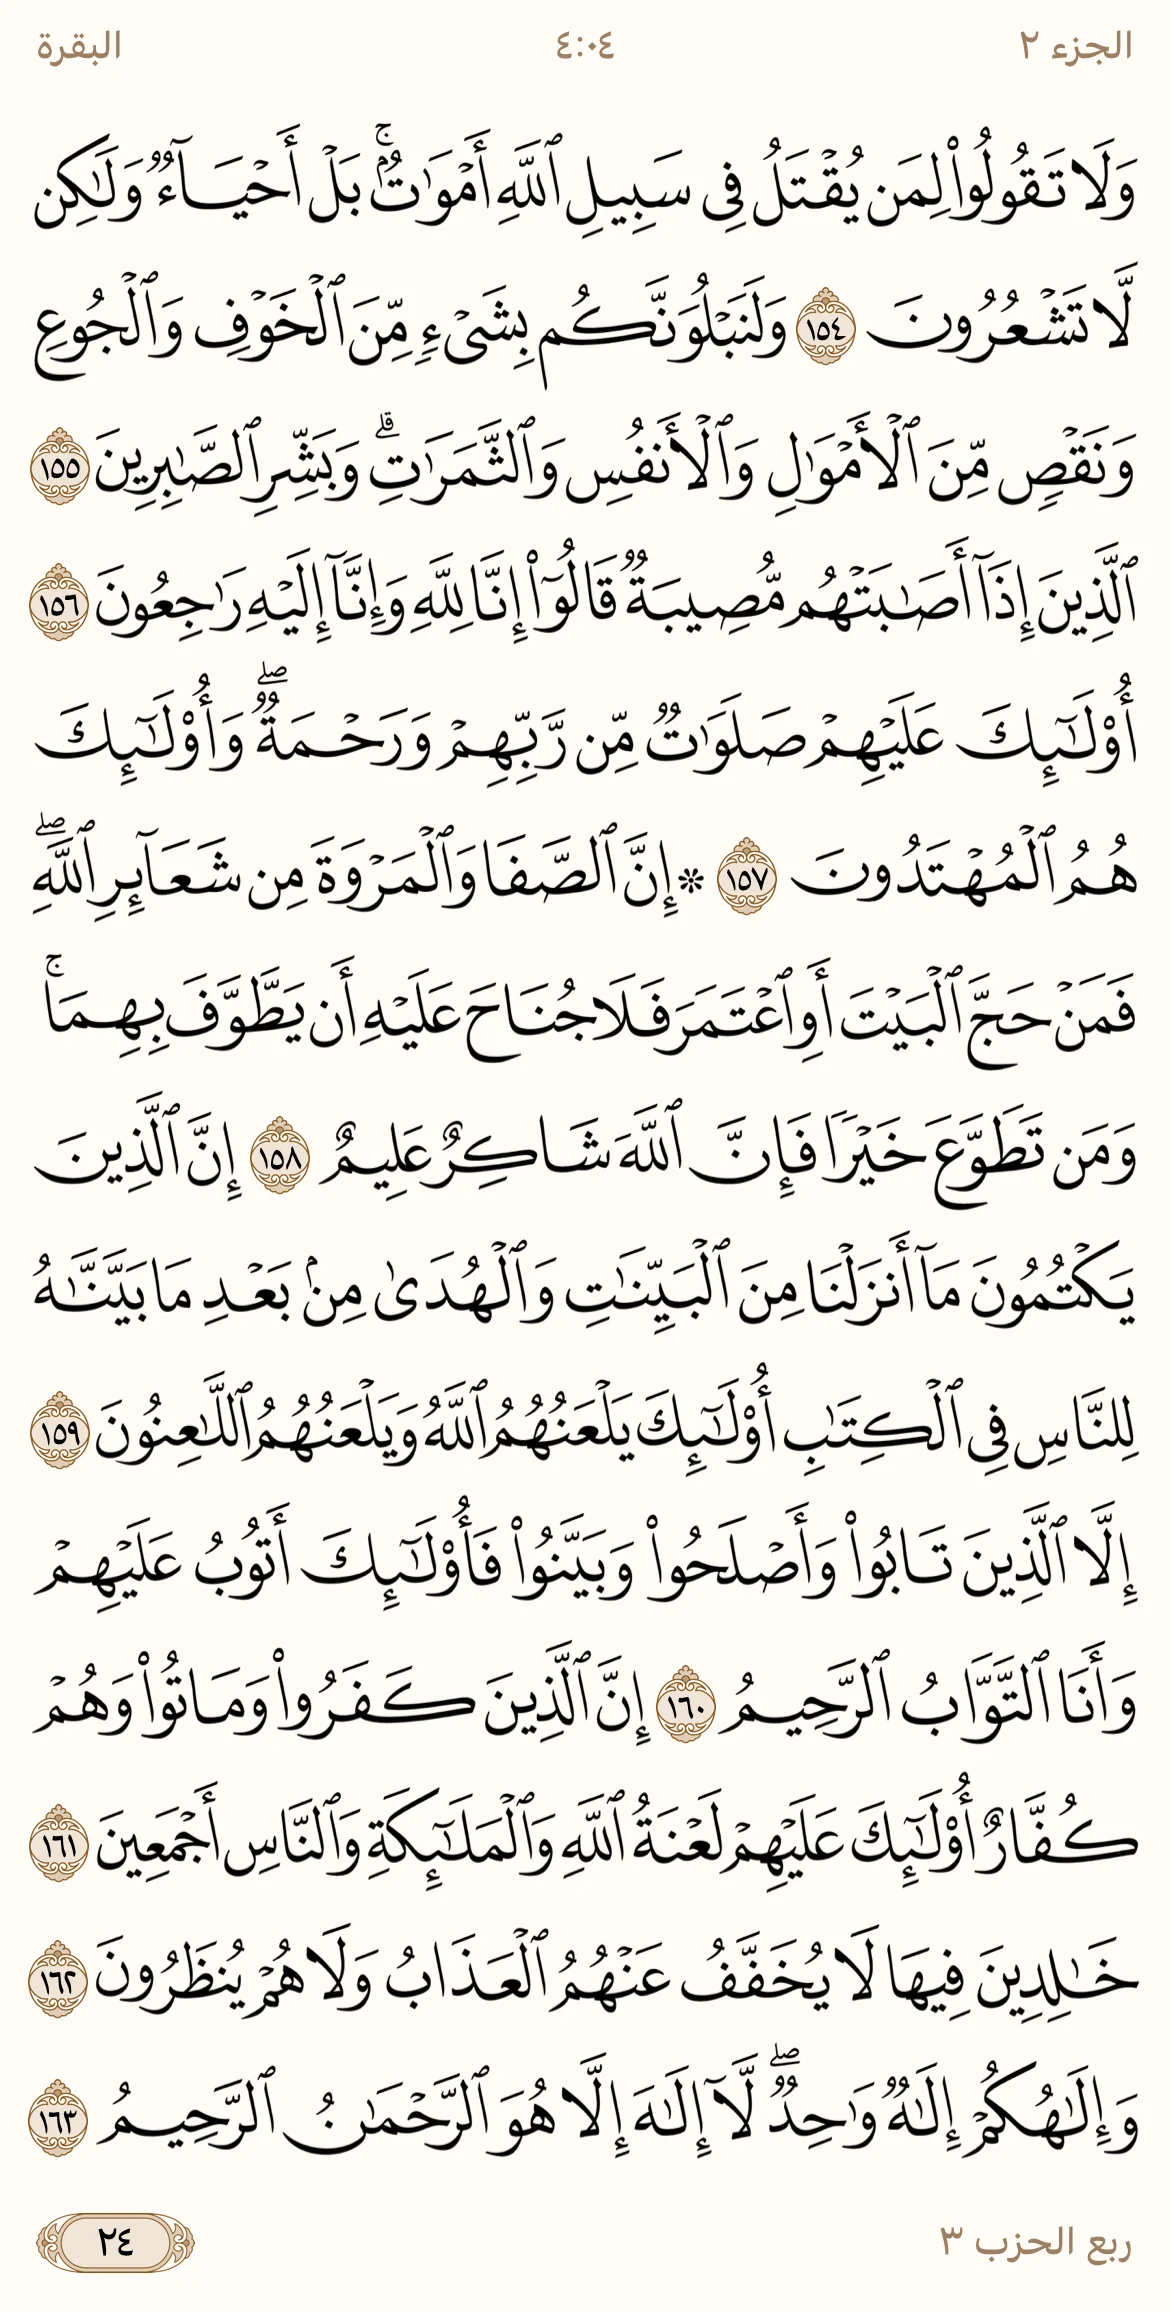 الجزء ٢ ٤:٠٤ البقرة
وَلَا تَقُولُوا۟ لِمَن يُقْتَلُ فِى سَبِيلِ ٱللَّهِ أَمْوَٰتٌۢ ۚ بَلْ أَحْيَآءٌ وَلَـٰكِن
لَّا تَشْعُرُونَ ١٥٤ وَلَنَبْلُوَنَّكُم بِشَىْءٍ مِّنَ ٱلْخَوْفِ وَٱلْجُوعِ
وَنَقْصٍ مِّنَ ٱلْأَمْوَٰلِ وَٱلْأَنفُسِ وَٱلثَّمَرَٰتِ ۗ وَبَشِّرِ ٱلصَّـٰبِرِينَ ١٥٥
ٱلَّذِينَ إِذَآ أَصَـٰبَتْهُم مُّصِيبَةٌ قَالُوٓا۟ إِنَّا لِلَّهِ وَإِنَّآ إِلَيْهِ رَٰجِعُونَ ١٥٦
أُو۟لَـٰٓئِكَ عَلَيْهِمْ صَلَوَٰتٌ مِّن رَّبِّهِمْ وَرَحْمَةٌ ۖ وَأُو۟لَـٰٓئِكَ
هُمُ ٱلْمُهْتَدُونَ ١٥٧ ۞ إِنَّ ٱلصَّفَا وَٱلْمَرْوَةَ مِن شَعَآئِرِ ٱللَّهِ ۖ
فَمَنْ حَجَّ ٱلْبَيْتَ أَوِ ٱعْتَمَرَ فَلَا جُنَاحَ عَلَيْهِ أَن يَطَّوَّفَ بِهِمَا ۚ
وَمَن تَطَوَّعَ خَيْرًا فَإِنَّ ٱللَّهَ شَاكِرٌ عَلِيمٌ ١٥٨ إِنَّ ٱلَّذِينَ
يَكْتُمُونَ مَآ أَنزَلْنَا مِنَ ٱلْبَيِّنَـٰتِ وَٱلْهُدَىٰ مِنۢ بَعْدِ مَا بَيَّنَّـٰهُ
لِلنَّاسِ فِى ٱلْكِتَـٰبِ أُو۟لَـٰٓئِكَ يَلْعَنُهُمُ ٱللَّهُ وَيَلْعَنُهُمُ ٱللَّـٰعِنُونَ ١٥٩
إِلَّا ٱلَّذِينَ تَابُوا۟ وَأَصْلَحُوا۟ وَبَيَّنُوا۟ فَأُو۟لَـٰٓئِكَ أَتُوبُ عَلَيْهِمْ
وَأَنَا ٱلتَّوَّابُ ٱلرَّحِيمُ ١٦٠ إِنَّ ٱلَّذِينَ كَفَرُوا۟ وَمَاتُوا۟ وَهُمْ
كُفَّارٌ أُو۟لَـٰٓئِكَ عَلَيْهِمْ لَعْنَةُ ٱللَّهِ وَٱلْمَلَـٰٓئِكَةِ وَٱلنَّاسِ أَجْمَعِينَ ١٦١
خَـٰلِدِينَ فِيهَا لَا يُخَفَّفُ عَنْهُمُ ٱلْعَذَابُ وَلَا هُمْ يُنظَرُونَ ١٦٢
وَإِلَـٰهُكُمْ إِلَـٰهٌ وَٰحِدٌ ۖ لَّآ إِلَـٰهَ إِلَّا هُوَ ٱلرَّحْمَـٰنُ ٱلرَّحِيمُ ١٦٣
ربع الحزب ٣ ٢٤